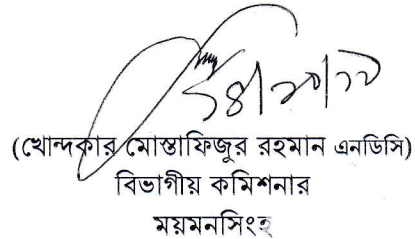 (খোন্দকার মোস্তাফিজুর রহমান এনডিসি)
বিভাগীয় কমিশনার
ময়মনসিংহ